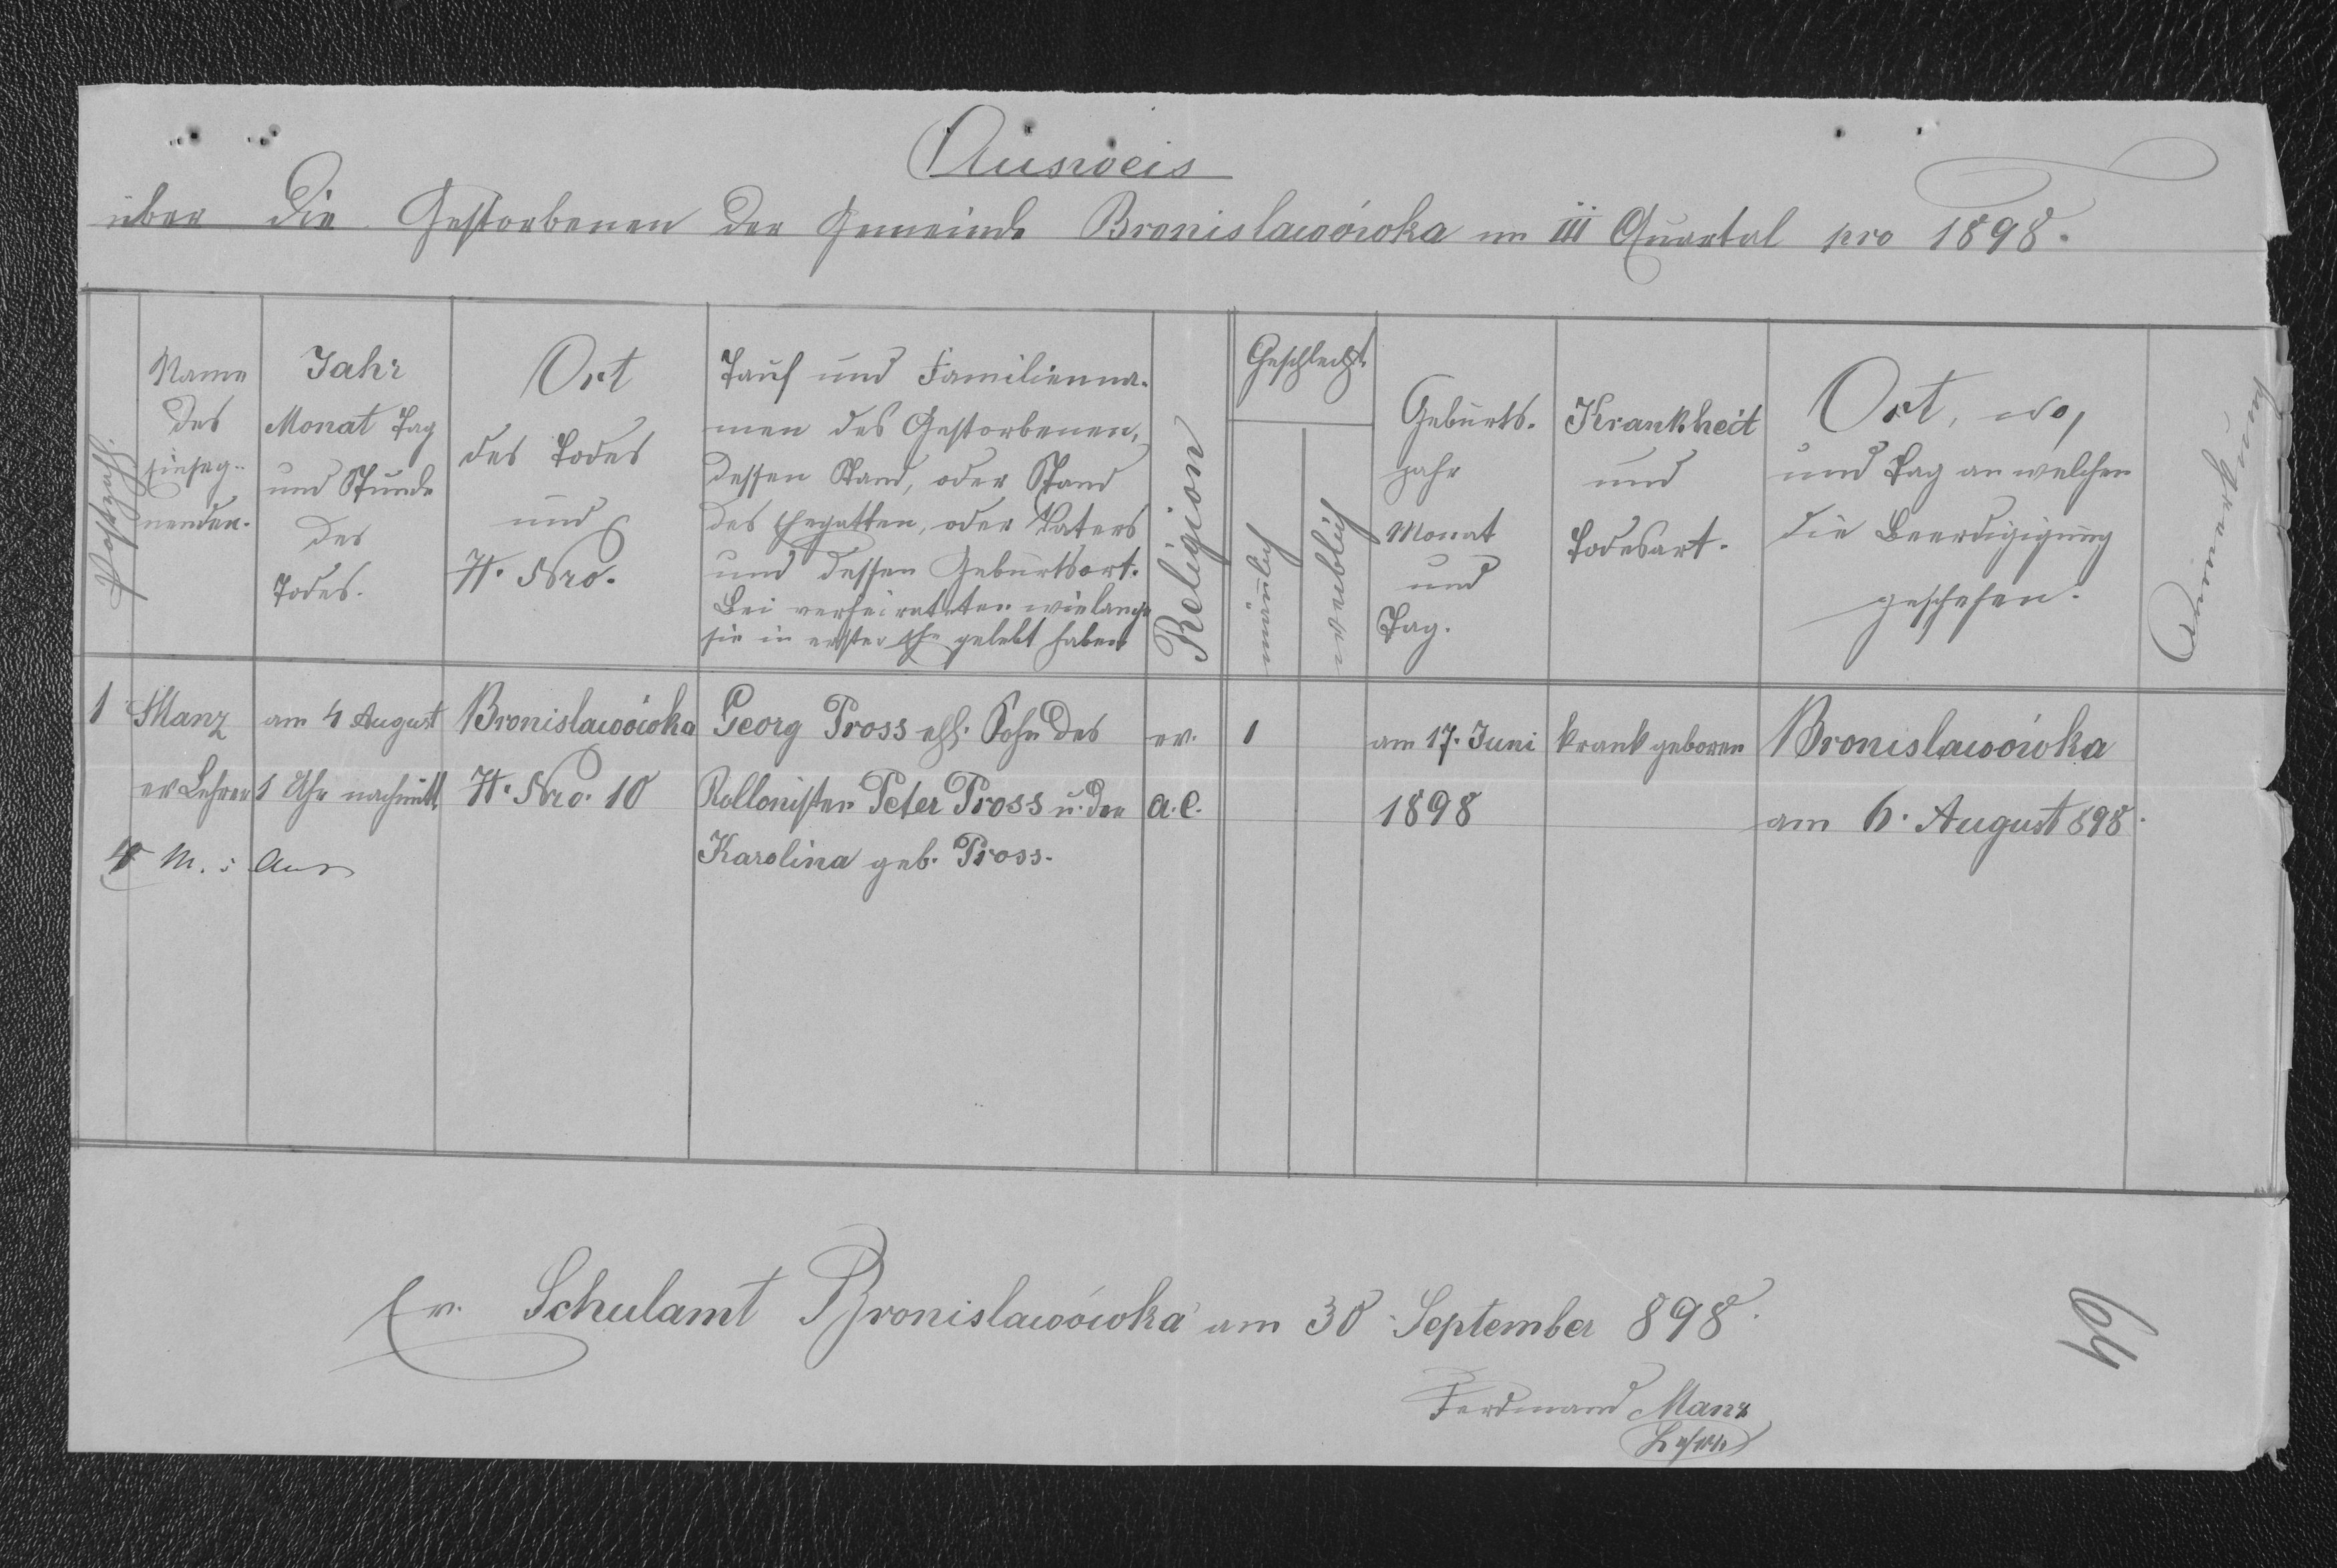 Ausweis
über die Gestorbenen der Gemeinde Bronislawówka im III Quartal pro 1898.
Postzahl.
Name
des
Einseg-
nenden.
Jahr
Monat Tag
und Stunde
des
Todes.
Ort
des Todes
und
H. Nro.
Tauf und Familienna-
men des Gestorbenen,
dessen Stand, oder Stand
des Ehegatten, oder Vaters
und dessen Geburtsort.
Bei verheirateten wie lange
sie in erster Ehe gelebt haben
Religion
Geschlecht
männlich
weiblich
Geburts-
jahr
Monat
und
Tag.
Krankheit
und
Todesart.
Ort, wo,
und Tag an welchen
die Beerdigigung
geschehen.
Anmerkung
1 Manz am 4 August Bronislawówka Georg Pross ehl. Sohn des ev. 1 am 17. Juni krank geboren Bronislawówka
ev Lehrer 1 Uhr nachmitt H. Nro. 10 Kollonisten Peter Pross u. der a. C. 1898 am 6. August 898.
Karolina geb. Pross.
Ev. Schulamt Bronislawówka am 30 September 898.
64
Ferdinand Manz
Lehrer